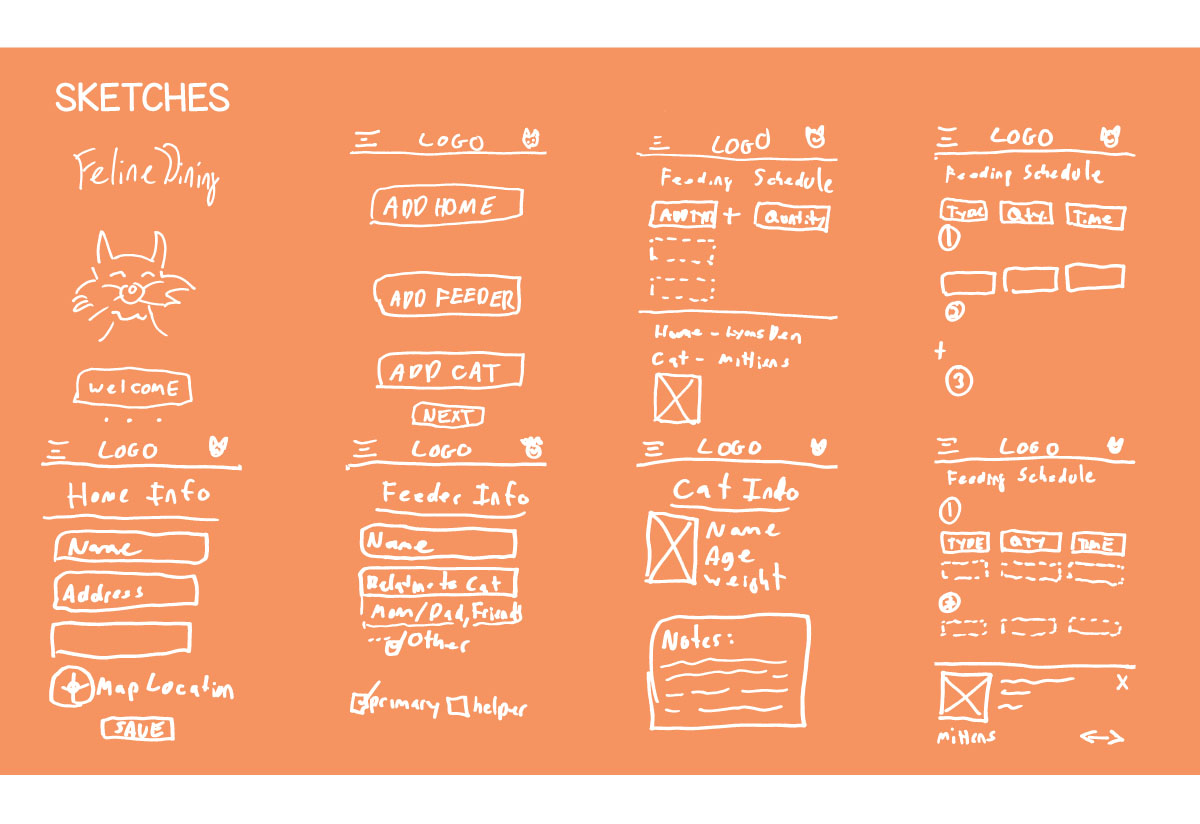 SKETCHES
Feline Dining
WelCOME
LOGO
ADD HOME
ADD FEEDER
ADD CAT
NEXT
LOGO
Feeding Schedule
+ Quntity
Home - Lyons Den
Cat - mittens
LOGO
Feeding Schedule
TYPE Qty. Time
1
2
+
3
LOGO
Home Info
Name
Address
Map Location
SAVE
LOGO
Feeder Info
Name
Relatme to Cat
Mom/Dad, Friends
Other
primary helper
LOGO
Cat Info
Name
Age
weight
Notes:
LOGO
Feeding Schedule
1
TYPE QTY TIME
2
X
mittens